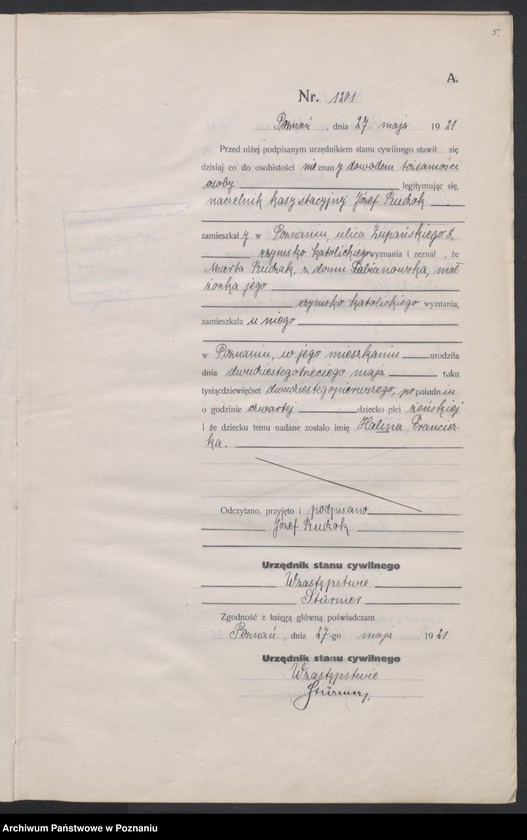 5.
A.
Nr. 1201
Poznań, dnia 27. maja 1921
Przed niżej podpisanym urzędnikiem stanu cywilnego stawił się
dzisiaj co do osobistości nieznany z dowodem tożsamości
osoby legitymując się,
naczelnik kasy stacyjnej Józef Rudzok
zamieszkały w Poznaniu, ulica Żupańskiego 8,
rzymsko katolickiego wyznania i zeznał, że
Marta Rudzak, z domu Fabianowska, mał
żonka jego
rzymsko katolickiego wyznania,
zamieszkała u niego
w Poznaniu, w jego mieszkaniu urodziła
dnia dwudziestegotrzeciego maja roku
tysiącdziewięćset dwudziestegopierwszego, po południu
o godzinie czwartej dziecko płci żeńskiej
i że dziecku temu nadane zostało imię Halina Francisz-
ka.
Odczytano, przyjęto i podpisano
Józef Rudzok
Urzędnik stanu cywilnego
W zastępstwie
Stürmer
Zgodność z księgą główną poświadczam
Poznań, dnia 27-go maja 1921
Urzędnik stanu cywilnego
W zastępstwie
Stürmer
Archiwum Państwowe w Poznaniu